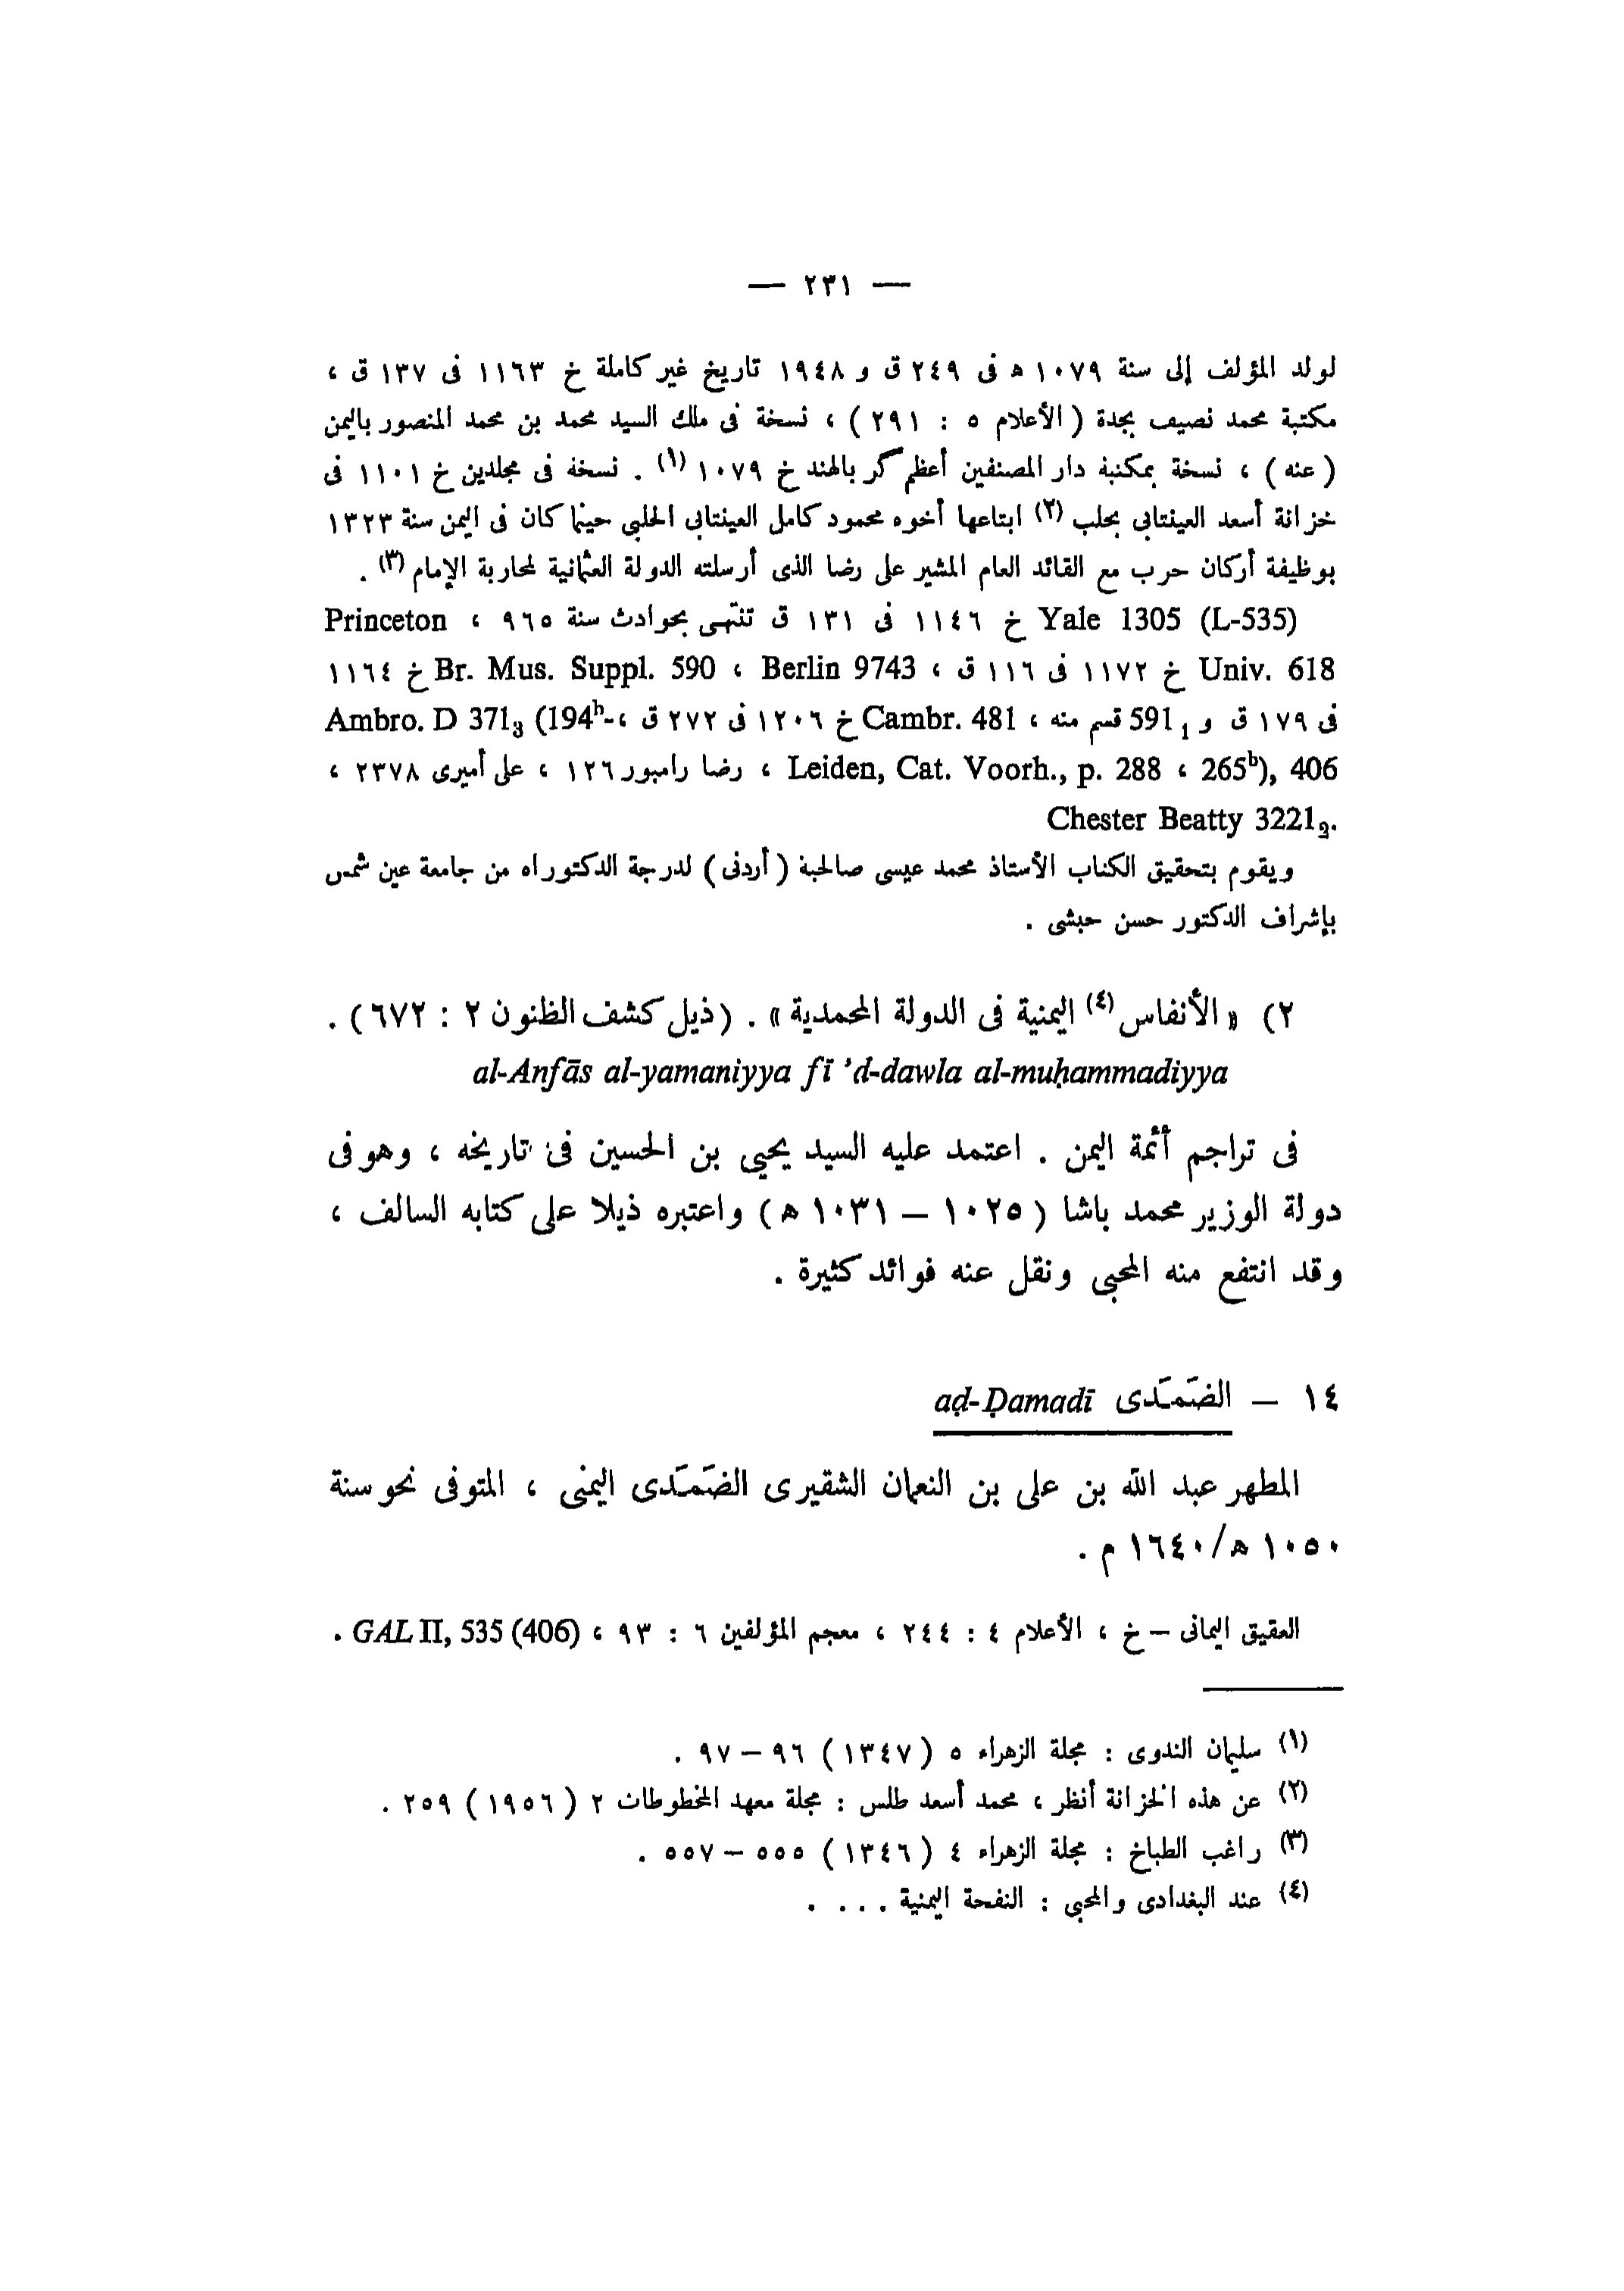 — ٢٣١ —
لولد المؤلف إلى سنة ١٠٧٩ ه فى ٢٤٩ ق و ١٩٤٨ تاريخ غير كاملة خ ١١٦٣ فى ١٣٧ ق ،
مكتبة محمد نصيف بجدة ( الأعلام ٥ : ٢٩١ ) ، نسخة فى ملك السيد محمد بن محمد المنصور باليمن
( عنه ) ، نسخة بمكتبة دار المصنفين أعظم گر بالهند خ ١٠٧٩ (١) . نسخة فى مجلدين خ ١١٠١ فى
خزانة أسعد العينتابي بحلب (٢) ابتاعها أخوه محمود كامل العينتابي الحلبي حينما كان فى اليمن سنة ١٣٢٣
بوظيفة أركان حرب مع القائد العام المشير على رضا الذى أرسلته الدولة العثمانية لمحاربة الإمام (٣) .
Yale 1305 (L-535) خ ١١٤٦ فى ١٣١ ق تنتهى بحوادث سنة ٩٦٥ ، Princeton
Univ. 618 خ ١١٧٢ فى ١١٦ ق ، Berlin 9743 ، Br. Mus. Suppl. 590 خ ١١٦٤
فى ١٧٩ ق و 591₁ قسم منه ، Cambr. 481 خ ١٢٠٦ فى ٢٧٢ ق ، Ambro. D 371₃ (194ʰ-
265ᵇ), 406 ، Leiden, Cat. Voorh., p. 288 ، رضا رامبور ١٢٦ ، على أميرى ٢٣٧٨ ،
Chester Beatty 3221₂.
ويقوم بتحقيق الكتاب الأستاذ محمد عيسى صالحية ( أردنى ) لدرجة الدكتوراه من جامعة عين شمس
بإشراف الدكتور حسن حبشى .
٢) « الأنفاس (٤) اليمنية فى الدولة المحمدية » . (ذيل كشف الظنون ٢ : ٦٧٢) .
al-Anfās al-yamaniyya fī ’d-dawla al-muḥammadiyya
فى تراجم أئمة اليمن . اعتمد عليه السيد يحيى بن الحسين فى تاريخه ، وهو فى
دولة الوزير محمد باشا ( ١٠٢٥ – ١٠٣١ ه ) واعتبره ذيلا على كتابه السالف ،
وقد انتفع منه المحبى ونقل عنه فوائد كثيرة .
١٤ – الضَمَدى aḍ-Ḍamadī
المطهر عبد الله بن على بن النعمان الشقيرى الضَمَدى اليمنى ، المتوفى نحو سنة
١٠٥٠ ه/١٦٤٠ م .
العقيق اليمانى – خ ، الأعلام ٤ : ٢٤٤ ، معجم المؤلفين ٦ : ٩٣ ، GAL II, 535 (406) .
(١) سليمان الندوى : مجلة الزهراء ٥ ( ١٣٤٧ ) ٩٦ – ٩٧ .
(٢) عن هذه الخزانة أنظر ، محمد أسعد طلس : مجلة معهد المخطوطات ٢ ( ١٩٥٦ ) ٢٥٩ .
(٣) راغب الطباخ : مجلة الزهراء ٤ ( ١٣٤٦ ) ٥٥٥ – ٥٥٧ .
(٤) عند البغدادى والمحبى : النفحة اليمنية . . . .